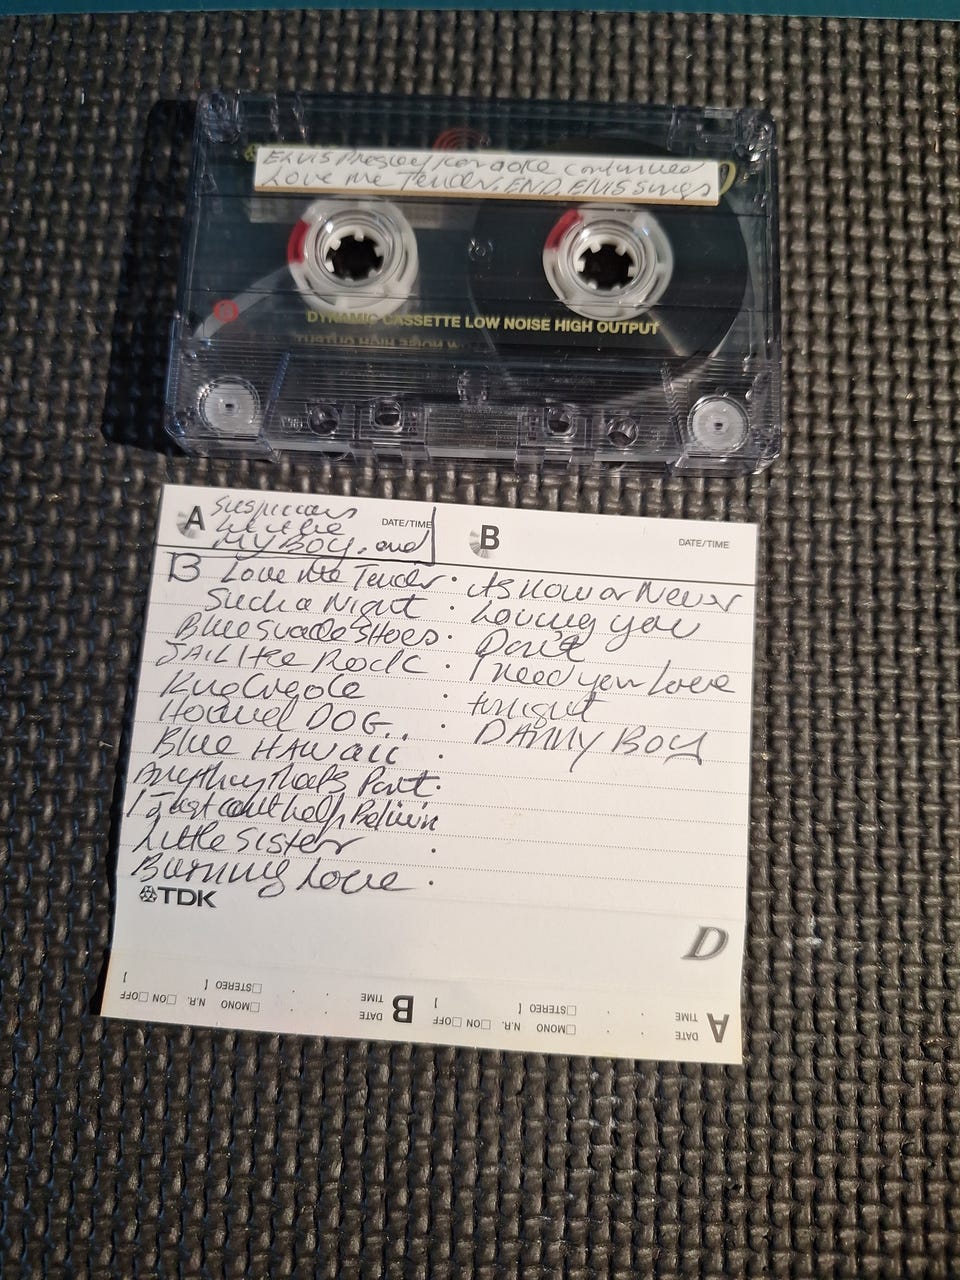 ELVIS Presley/Karaoke continued
Love me Tender. END. ELVIS Sings
DYNAMIC CASSETTE LOW NOISE HIGH OUTPUT
A
suspicious
DATE/TIME
MY BOY. and
B
DATE/TIME
B Love me Tender.
Such a Night.
Blue Suade SHoes.
JAIL Hse Rock.
King Creole.
Hound DOG...
Blue HAWaii.
Anything thats Part.
I Just cant help Belivin
Little Sister.
Burning Love.
Its Now or Never
Loving you
Don't
I Need your Love
tonight
DANNY BOY
TDK
D
A DATE TIME
MONO STEREO [
N.R. ON OFF ]
B DATE TIME
MONO STEREO [
N.R. ON OFF ]